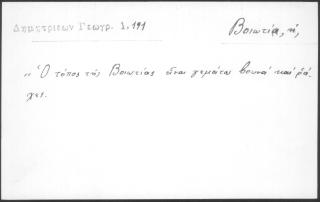 Δημητριέων Γεωγρ. 1,191
Βοιωτία, ἡ,
„ Ὁ τόπος τῆς Βοιωτίας εἶναι γεμάτος βουνὰ καὶ ῥά-
χες.